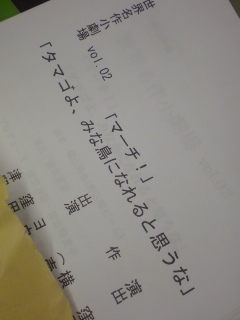 世界名作小劇場
vol.02
「マーチ!」
「タマゴよ、みな鳥になれると思うな」
作
演出
出演